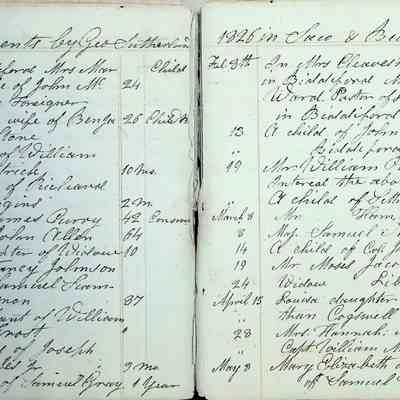 ents by Geo Sutherland
Mrs Mar Child
e of John Mc 24
Foreigner
wife of Benja 26 Child
Stone
of William
10 Mo.
of Richard
gins 2 m
ames Purvy 42 Consum
John Allen 64
ter of Widow 10
ancy Johnson
Samuel Scam-
mon 37
ant of William
of Joseph
9 Mo
of Samuel Gray 1 Year
1826 in Saco & Bid
Feb. 8th In Mrs Cleaves
in Biddeford M
Ward Pastor of
in Biddeford
13 A child of John
Biddeford
19 Mr. William P
Interest the abo
" A child of
March 8 Mr.
8 Maj. Samuel
14 A child of Col. J
19 Mr. Moses Jaco
24 Widow Lib
April 15 Louisa daughter
than Cogswell
23 Mrs. Hannah
Capt William
May 3 Mary Elizabeth
of Samuel